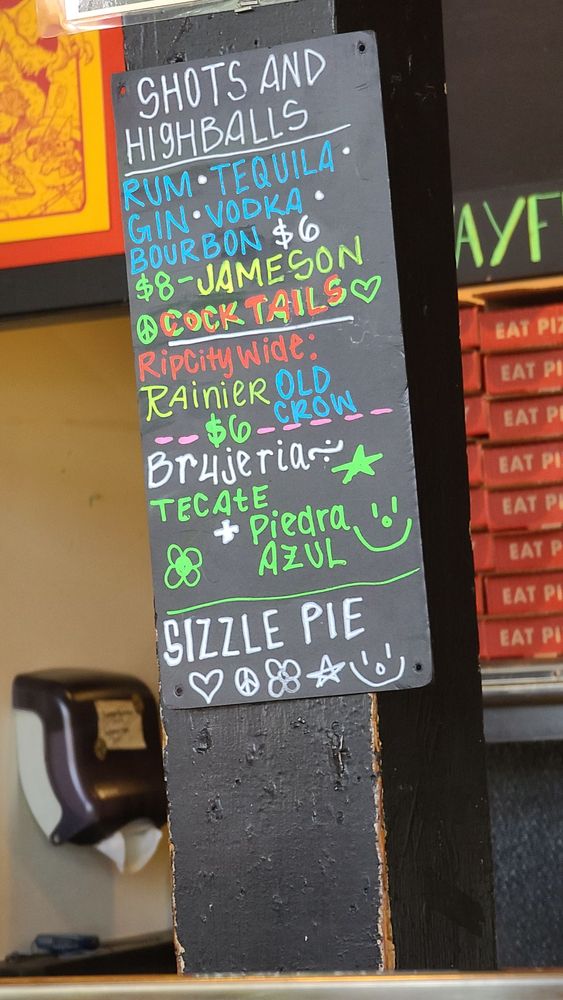 SHOTS AND
HIGHBALLS
RUM • TEQUILA •
GIN • VODKA •
BOURBON $6
$8-JAMESON
COCKTAILS
RipCityWide:
RAiniER OLD
CROW
$6
Brujeria
TECAtE
+ Piedra
AZUL
SIZZLE PIE
AYF
EAT PIZ
EAT PI
EAT PI
EAT PI
EAT PI
EAT PI
EAT PI
EAT PI